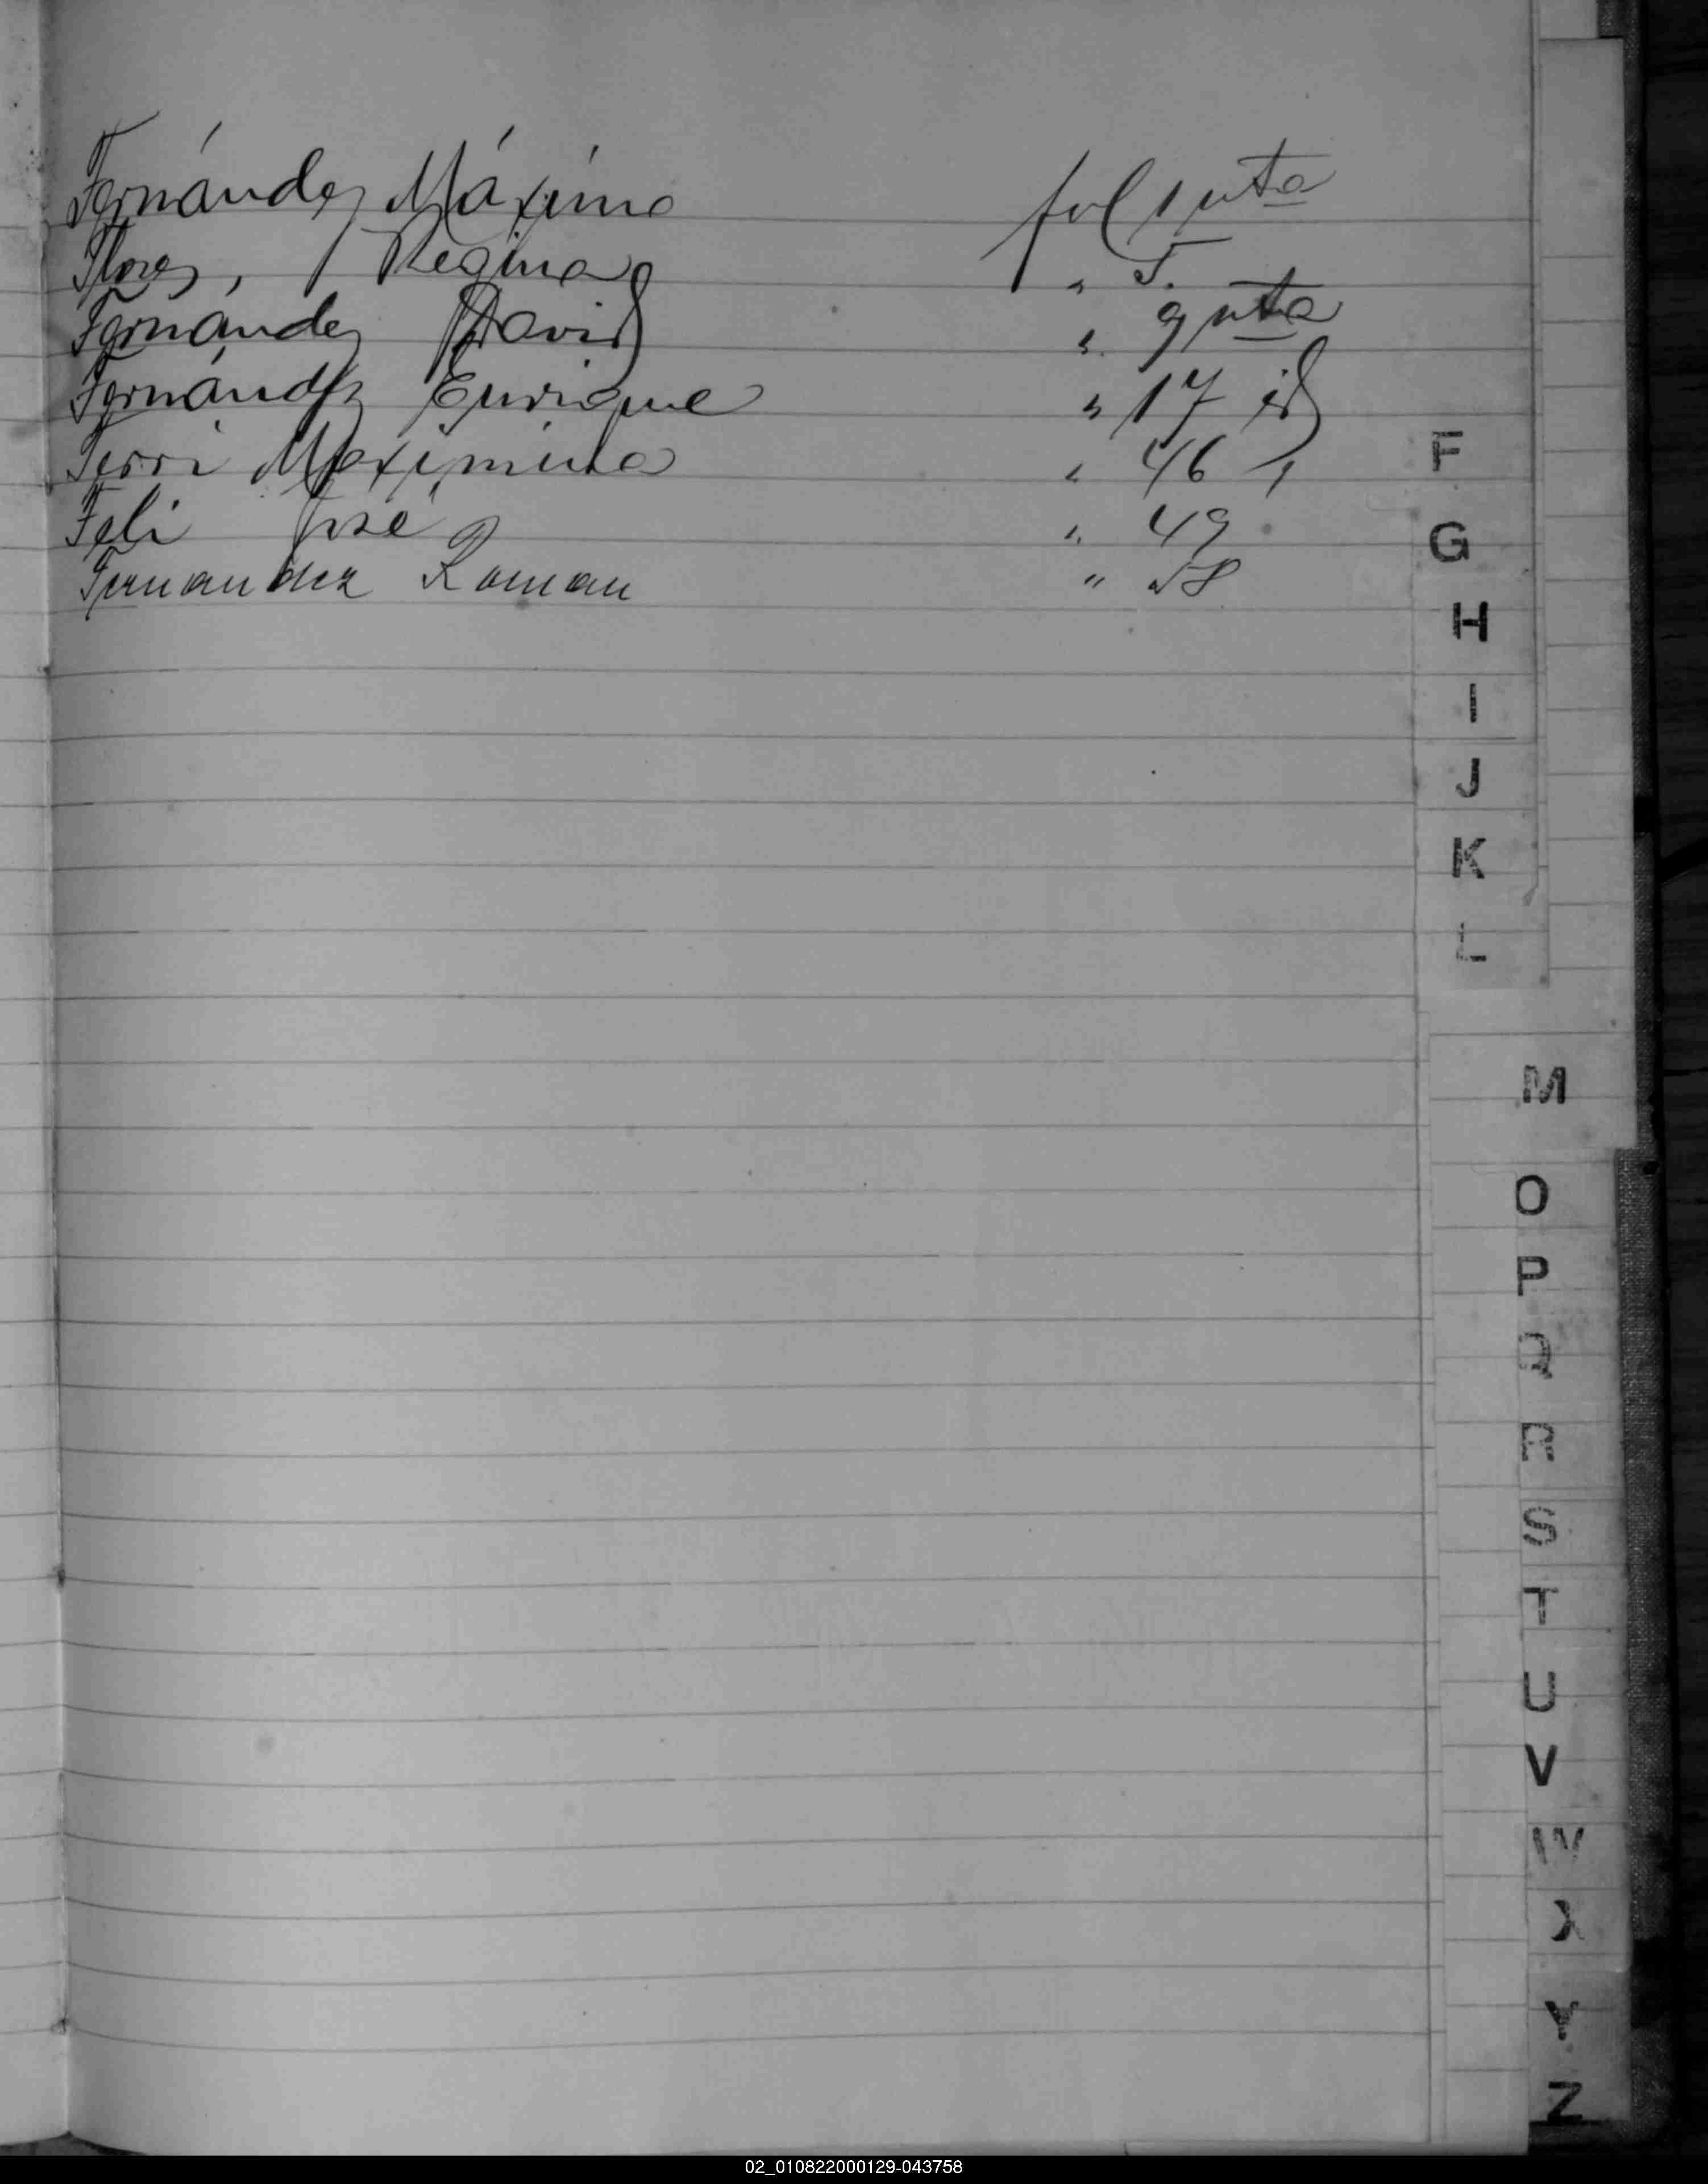 Fernández Máximo fol 1 vta
Flores, Regina " 5.
Fernández David " 9 vta
Fernández Enrique " 17 id
Ferri Maximina " 46 "
Feli José " 49
Fernandez Roman " 58
F
G
H
I
J
K
L
M
O
P
Q
R
S
T
U
V
W
X
Y
Z
02_010822000129-043758